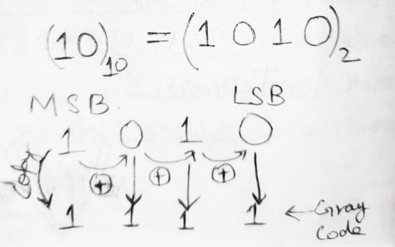 (10)₁₀ = (1 0 1 0)₂
MSB. LSB
1 0 1 0
Copy ⊕ ⊕ ⊕
1 1 1 1 ← Gray
Code